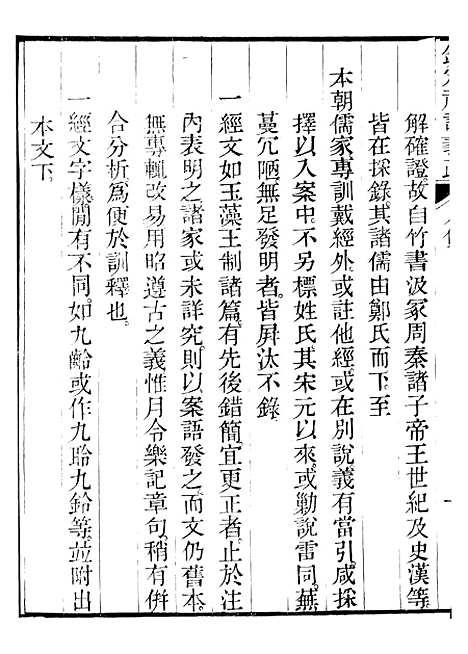 解確證故自竹書汲冢周秦諸子帝王世紀及史漢等
皆在採錄其諸儒由鄭氏而下至
本朝儒家專訓戴經外或註他經或在別說義有當引咸採
擇以入案中不另標姓氏其宋元以來或勦說雷同蕪
蔓冗陋無足發明者皆屏汰不錄
一經文如玉藻王制諸篇有先後錯簡宜更正者止於注
內表明之諸家或未詳究則以案語發之而文仍舊本
無專輒改易用昭遵古之義惟月令樂記章句稍有併
合分析為便於訓釋也
一經文字㨾閒有不同如九齡或作九聆九鈴等並附出
本文下